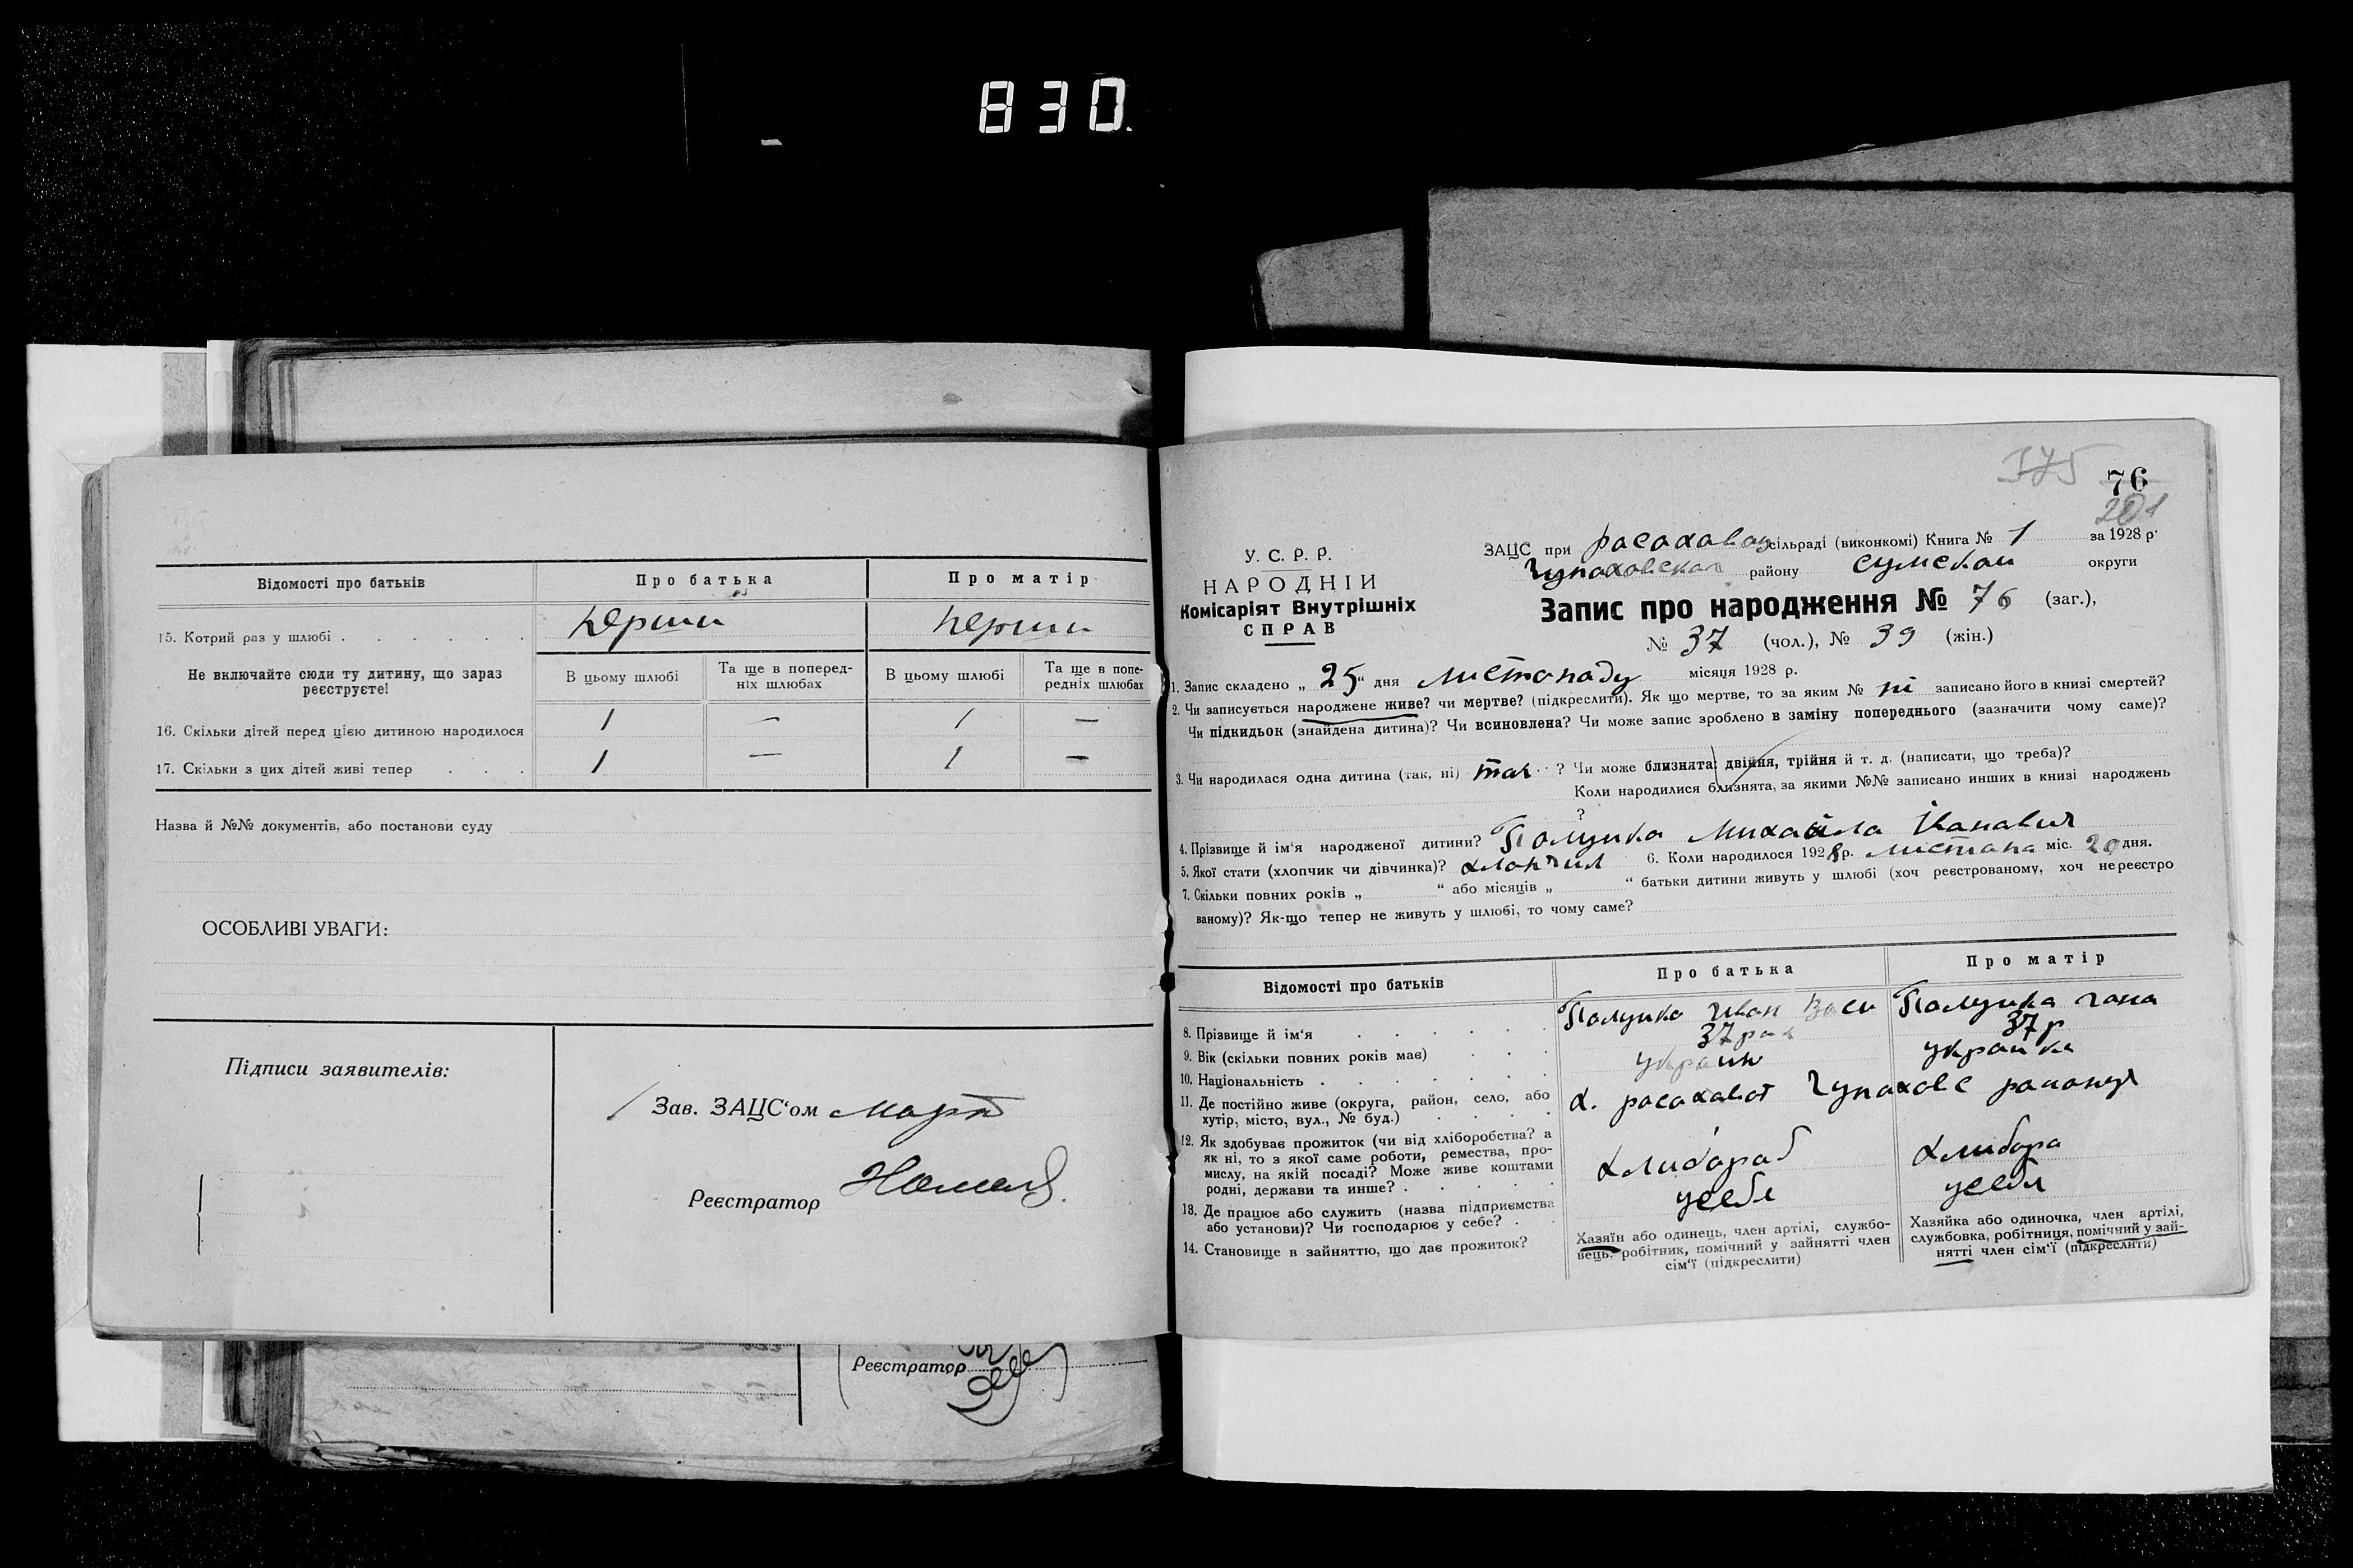 830.
Відомості про батьків
Про батька
Про матір
15. Котрий раз у шлюбі
перши
перши
Не включайте сюди ту дитину, що зараз реєструєте!
В цьому шлюбі
Та ще в поперед-
ніх шлюбах
В цьому шлюбі
Та ще в попе-
редніх шлюбах
16. Скільки дітей перед цією дитиною народилося
1 — 1 —
17. Скільки з цих дітей живі тепер
1 — 1 —
Назва й №№ документів, або постанови суду
ОСОБЛИВІ УВАГИ:
Підписи заявителів:
Зав. ЗАЦС'ом
Реєстратор
Реєстратор
375
76
201
У. С. Р. Р.
НАРОДНІЙ
Комісаріят Внутрішніх
СПРАВ
ЗАЦС при расахавоу сільраді (виконкомі) Книга № 1 за 1928 р.
Чупаховскои району сумскои округи
Запис про народження № 76 (заг.),
№ 37 (чол.), № 39 (жін.)
1. Запис складено „ 25 “ дня листопаду місяця 1928 р.
2. Чи записується народжене живе? чи мертве? (підкреслити). Як що мертве, то за яким № ні записано його в книзі смертей?
Чи підкидьок (знайдена дитина)? Чи всиновлена? Чи може запис зроблено в заміну попереднього (зазначити чому саме)?
3. Чи народилася одна дитина (так, ні) так ? Чи може близнята: двійня, трійня й т. д. (написати, що треба)?
Коли народилися близнята, за якими №№ записано инших в книзі народжень
?
4. Прізвище й ім'я народженої дитини? Полупка Михайла Іванавич
5. Якої стати (хлопчик чи дівчинка)? хлопчил 6. Коли народилося 1928 р. листапа міс. 20 дня.
7. Скільки повних років „ “ або місяців „ “ батьки дитини живуть у шлюбі (хоч реєстрованому, хоч нереєстро
ваному)? Як-що тепер не живуть у шлюбі, то чому саме?
Відомості про батьків
Про батька
Про матір
8. Прізвище й ім'я
Полупка Иван Васи
Полупка гана
9. Вік (скільки повних років має)
37 рок
37 р
10. Національність
украин
украинка
11. Де постійно живе (округа, район, село, або
хутір, місто, вул., № буд.)
х. расахават Чупахове раионуя
12. Як здобуває прожиток (чи від хліборобства? а
як ні, то з якої саме роботи, ремества, про-
мислу, на якій посаді? Може живе коштами
родні, держави та инше?
хлибораб
хлибора
13. Де працює або служить (назва підприємства
або установи)? Чи господарює у себе?
усебе
усебя
14. Становище в зайняттю, що дає прожиток?
Хазяїн або одинець, член артілі, службо-
вець, робітник, помічний у зайнятті член
сім'ї (підкреслити)
Хазяйка або одиночка, член артілі,
службовка, робітниця, помічний у зай-
нятті член сім'ї (підкреслити)